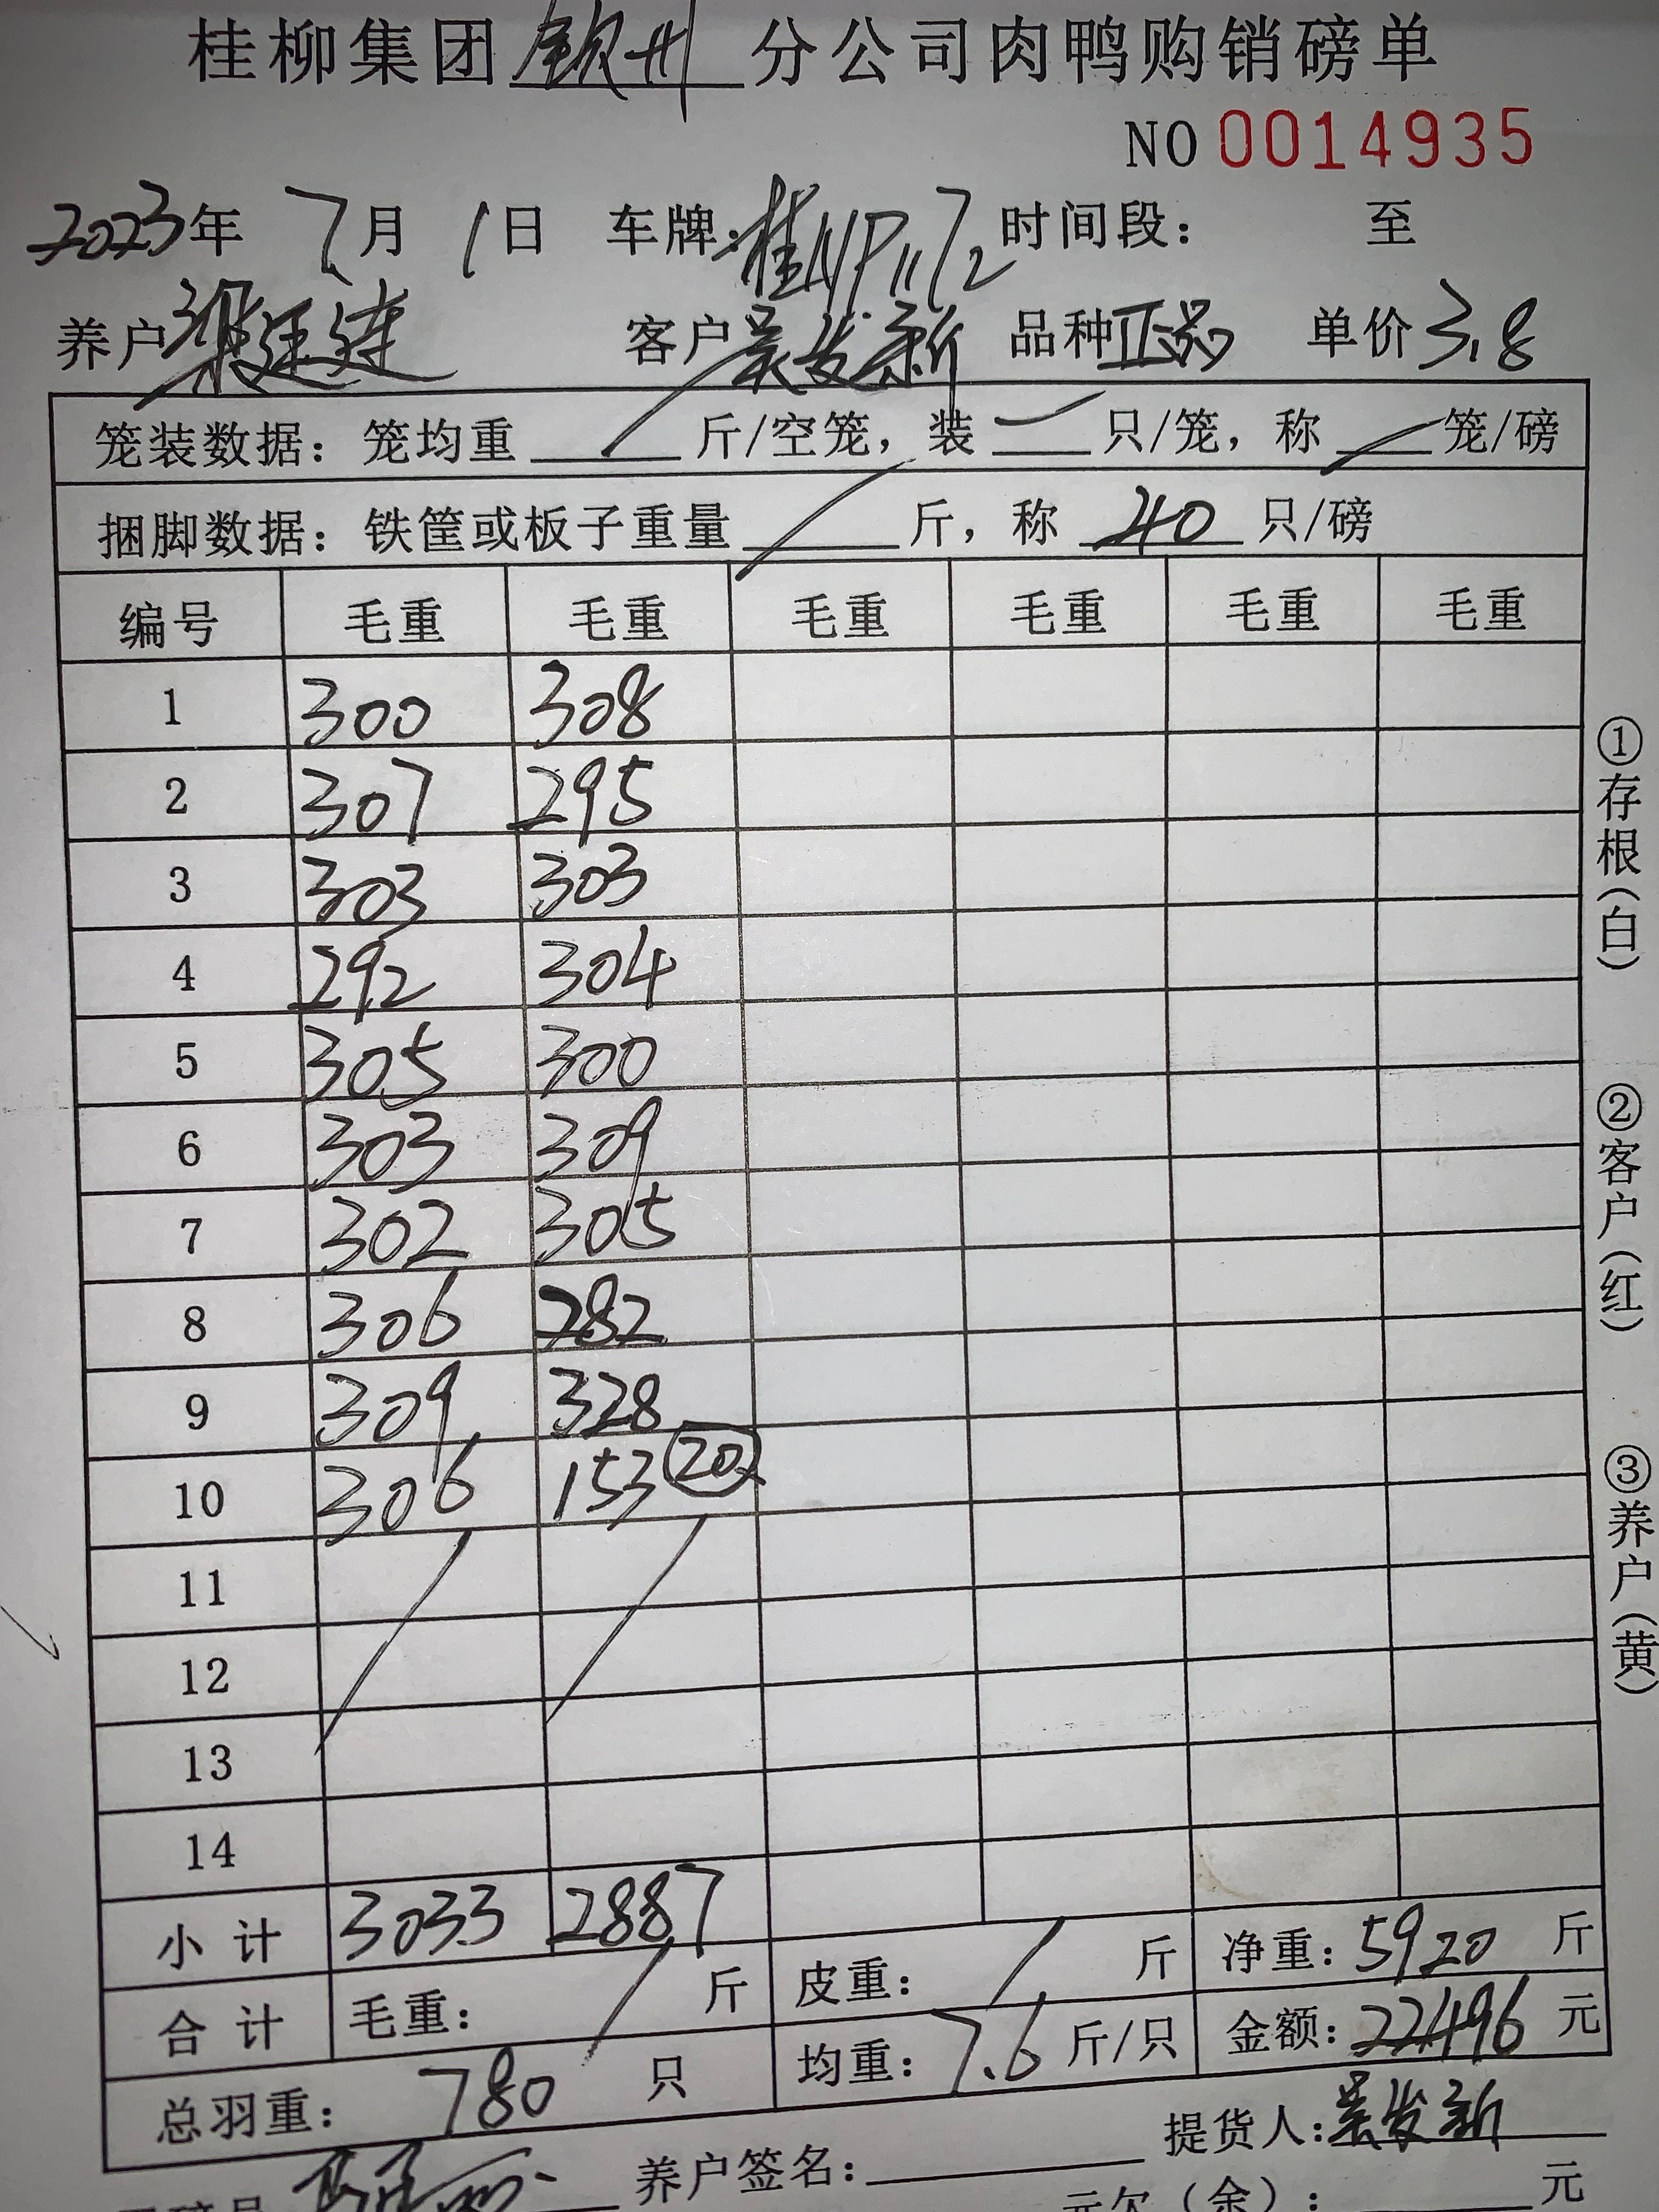 桂柳集团钦州分公司肉鸭购销磅单
NO 0014935
2023年 7月 1日 车牌:桂NP1172 时间段: 至
养户梁廷连 客户吴发新 品种正品 单价3.8
笼装数据: 笼均重 斤/空笼, 装 只/笼, 称 笼/磅
捆脚数据: 铁筐或板子重量 斤, 称 40 只/磅
编号 毛重 毛重 毛重 毛重 毛重 毛重
1 300 308
2 307 295
3 303 303
4 292 304
5 305 300
6 303 309
7 302 305
8 306 282
9 309 328
10 306 153 20
11
12
13
14
小计 3033 2887
合计 毛重: 斤 皮重: 斤 净重: 5920 斤
总羽重: 780 只 均重: 7.6 斤/只 金额: 22496 元
养户签名: 提货人:吴发新
元欠(余): 元
①存根(白)
②客户(红)
③养户(黄)